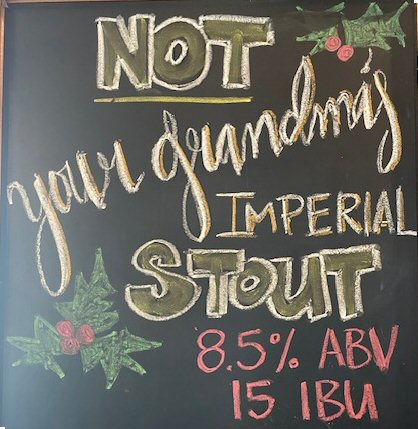 NOT
your grandma's
IMPERIAL
STOUT
8.5% ABV
15 IBU